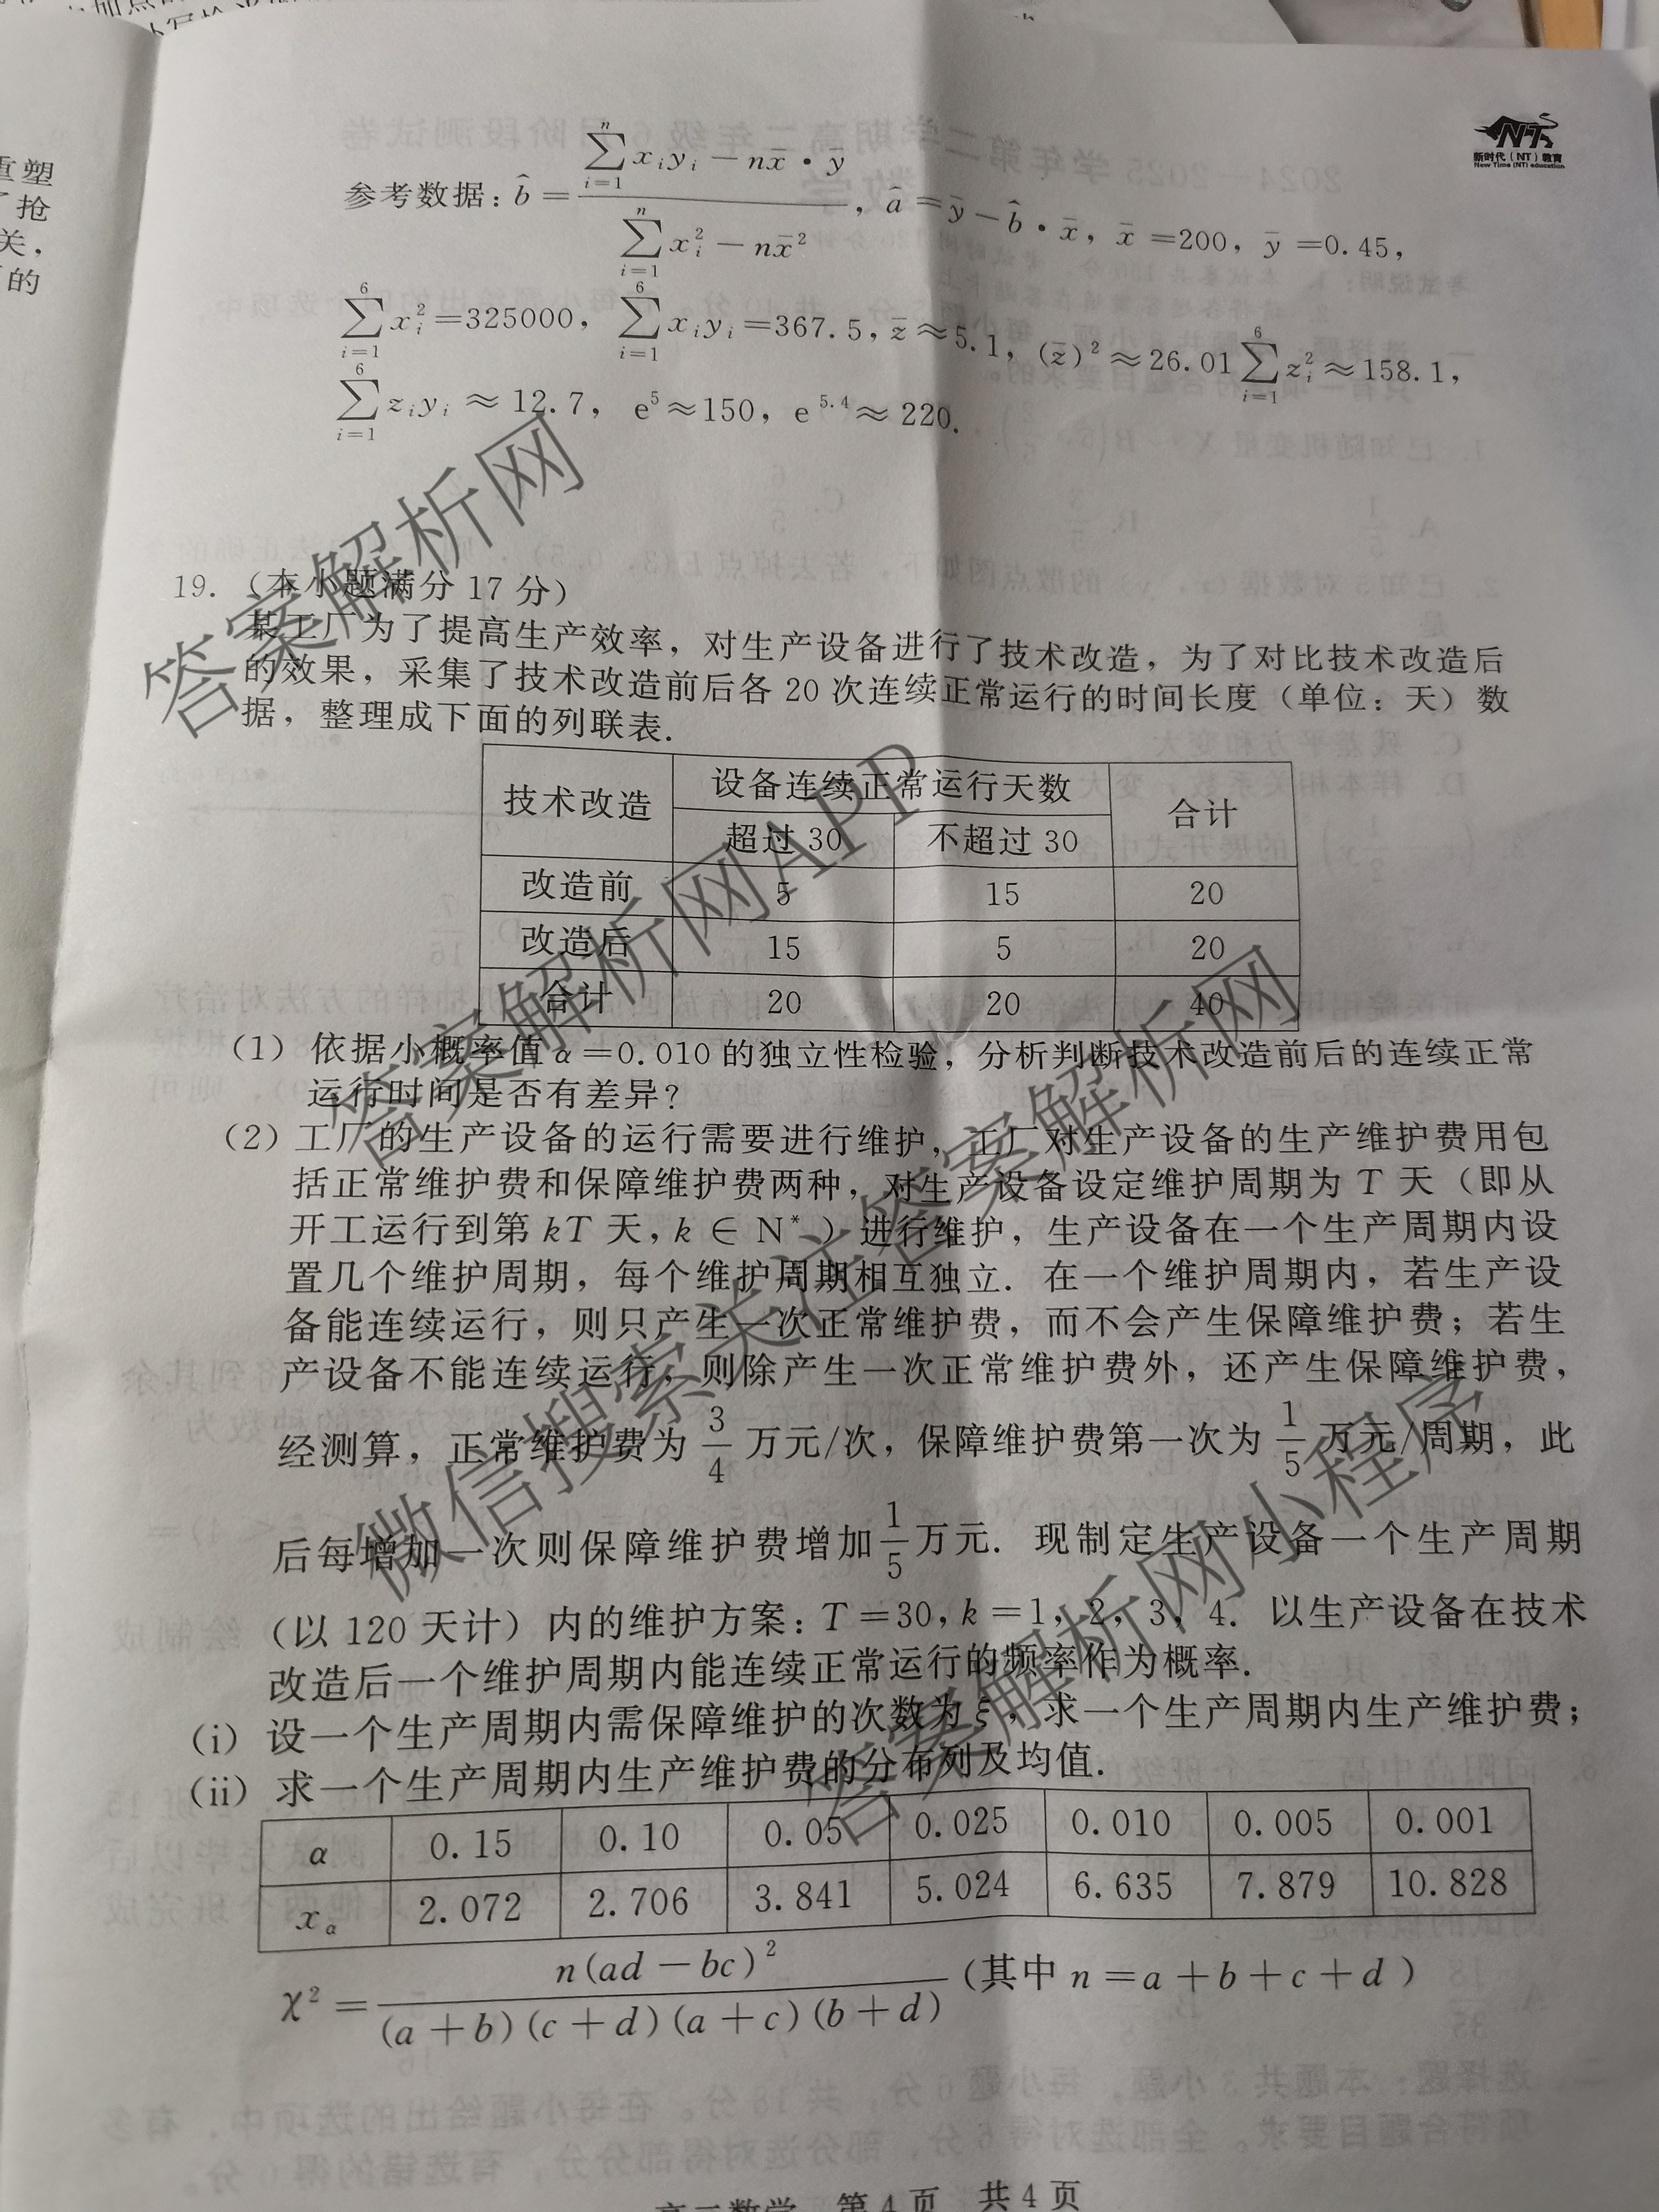 重塑
抢
关,
的
NT
新时代（NT）教育
New Time (NT) education
参考数据: b̂ = (∑_{i=1}^{n} x_i y_i − n x̄ • ȳ) / (∑_{i=1}^{n} x_i² − n x̄²), â = ȳ − b̂ • x̄, x̄ =200, ȳ =0.45,
∑_{i=1}^{6} x_i² =325000, ∑_{i=1}^{6} x_i y_i =367.5, z̄ ≈5.1, (z̄)² ≈26.01 ∑_{i=1}^{6} z_i² ≈158.1,
∑_{i=1}^{6} z_i y_i ≈ 12.7, e⁵≈150, e^{5.4} ≈ 220.
19.（本小题满分 17 分）
某工厂为了提高生产效率，对生产设备进行了技术改造，为了对比技术改造后
的效果，采集了技术改造前后各 20 次连续正常运行的时间长度（单位：天）数
据，整理成下面的列联表.
技术改造 设备连续正常运行天数 合计
超过 30 不超过 30
改造前 5 15 20
改造后 15 5 20
合计 20 20 40
（1）依据小概率值 α＝0.010 的独立性检验，分析判断技术改造前后的连续正常
运行时间是否有差异？
（2）工厂的生产设备的运行需要进行维护，工厂对生产设备的生产维护费用包
括正常维护费和保障维护费两种，对生产设备设定维护周期为 T 天（即从
开工运行到第 kT 天, k ∈ N*）进行维护，生产设备在一个生产周期内设
置几个维护周期，每个维护周期相互独立. 在一个维护周期内，若生产设
备能连续运行，则只产生一次正常维护费，而不会产生保障维护费；若生
产设备不能连续运行，则除产生一次正常维护费外，还产生保障维护费，
经测算，正常维护费为 3/4 万元/次，保障维护费第一次为 1/5 万元/周期，此
后每增加一次则保障维护费增加 1/5 万元. 现制定生产设备一个生产周期
（以 120 天计）内的维护方案: T =30, k =1, 2, 3, 4. 以生产设备在技术
改造后一个维护周期内能连续正常运行的频率作为概率.
（i）设一个生产周期内需保障维护的次数为 ξ，求一个生产周期内生产维护费；
（ii）求一个生产周期内生产维护费的分布列及均值.
α 0.15 0.10 0.05 0.025 0.010 0.005 0.001
x_α 2.072 2.706 3.841 5.024 6.635 7.879 10.828
χ² = n(ad − bc)² / (a + b)(c + d)(a + c)(b + d) (其中 n = a + b + c + d )
高二数学 第 4 页 共 4 页
答案解析网
答案解析网APP
微信搜索关注答案解析网
答案解析网小程序